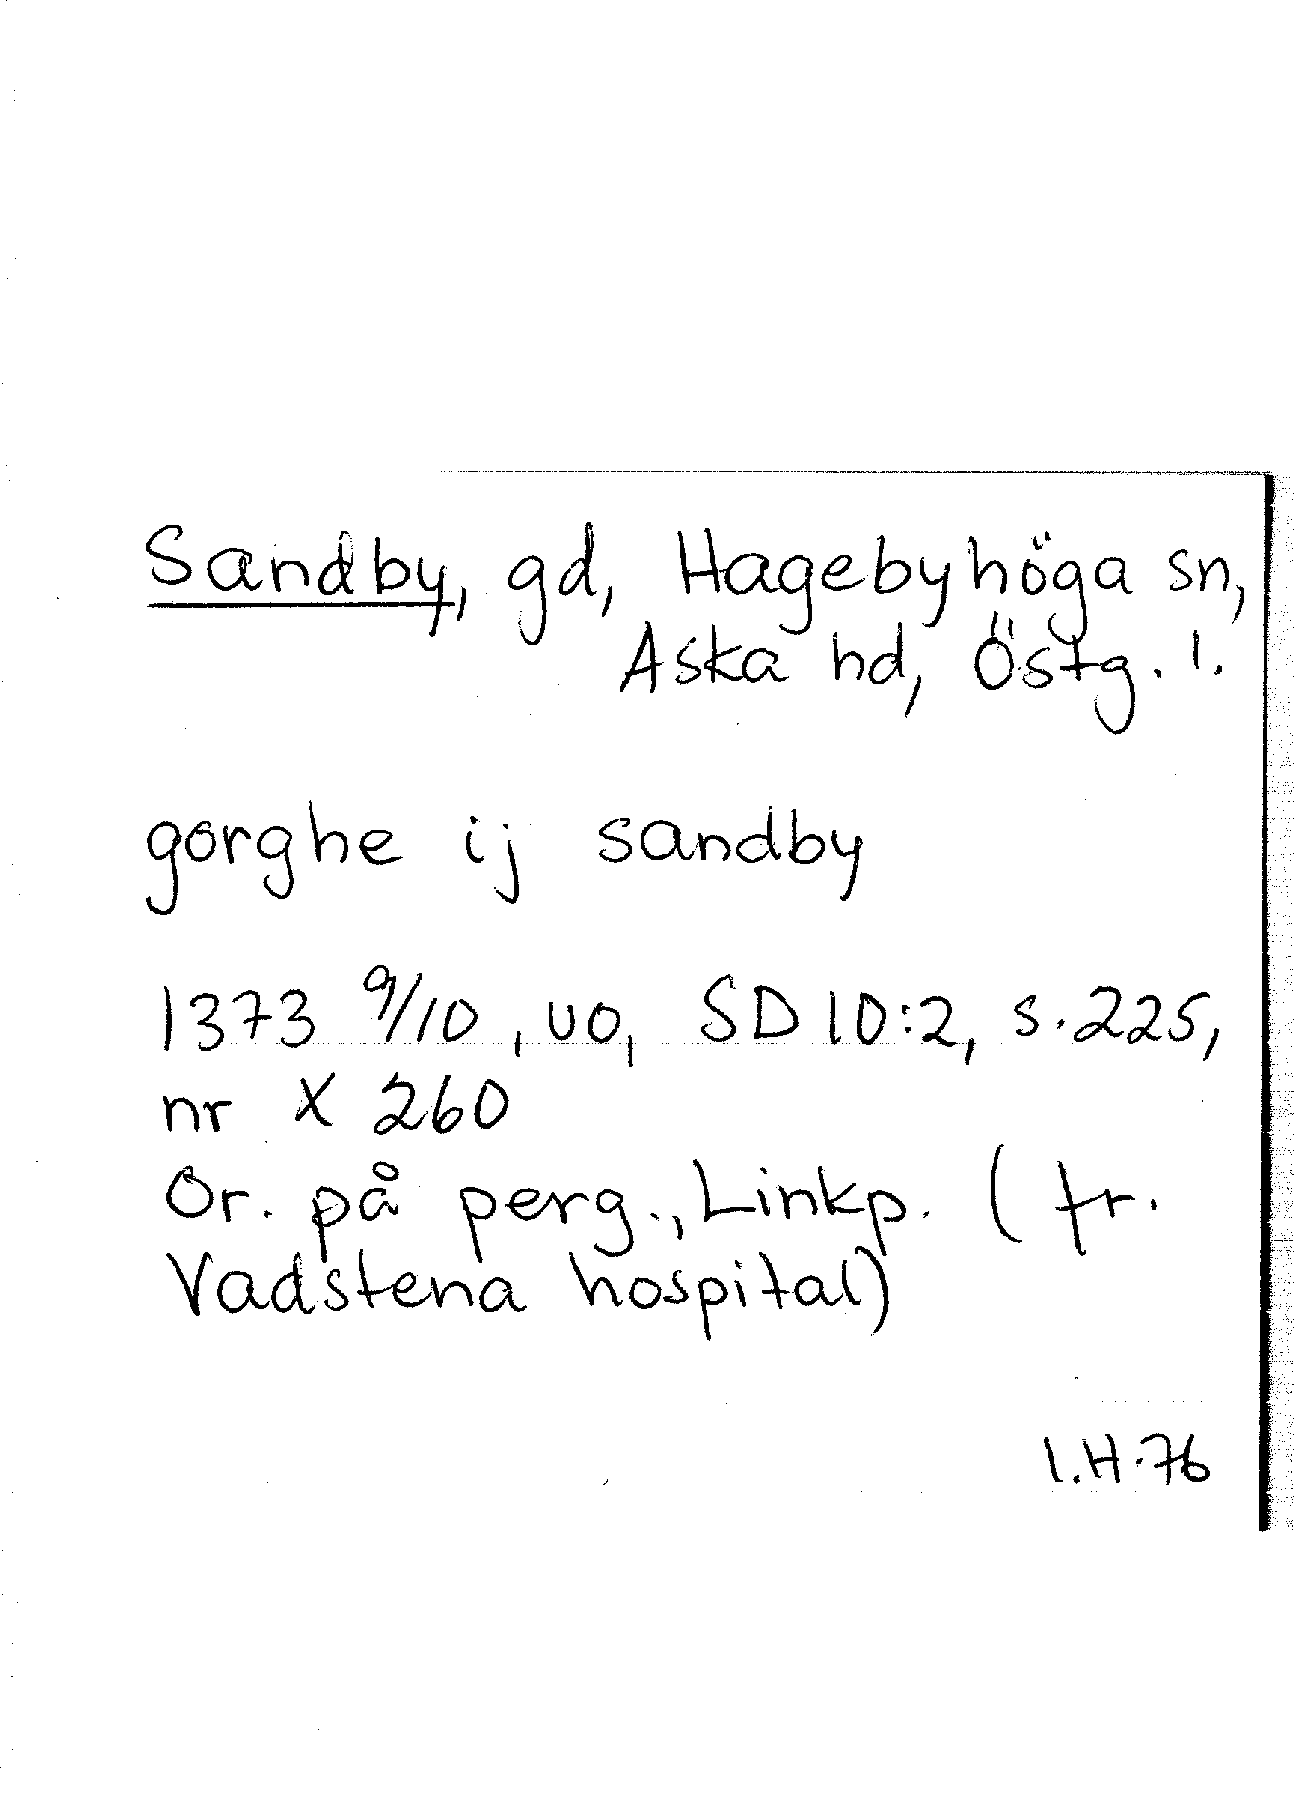 Sandby, gd, Hagebyhöga sn,
Aska hd, Östg. l.
gorghe ij sandby
1373 9/10, uo, SD 10:2, s. 225,
nr X 260
Or. på perg., Linkp. (fr.
Vadstena hospital)
I.H. 76